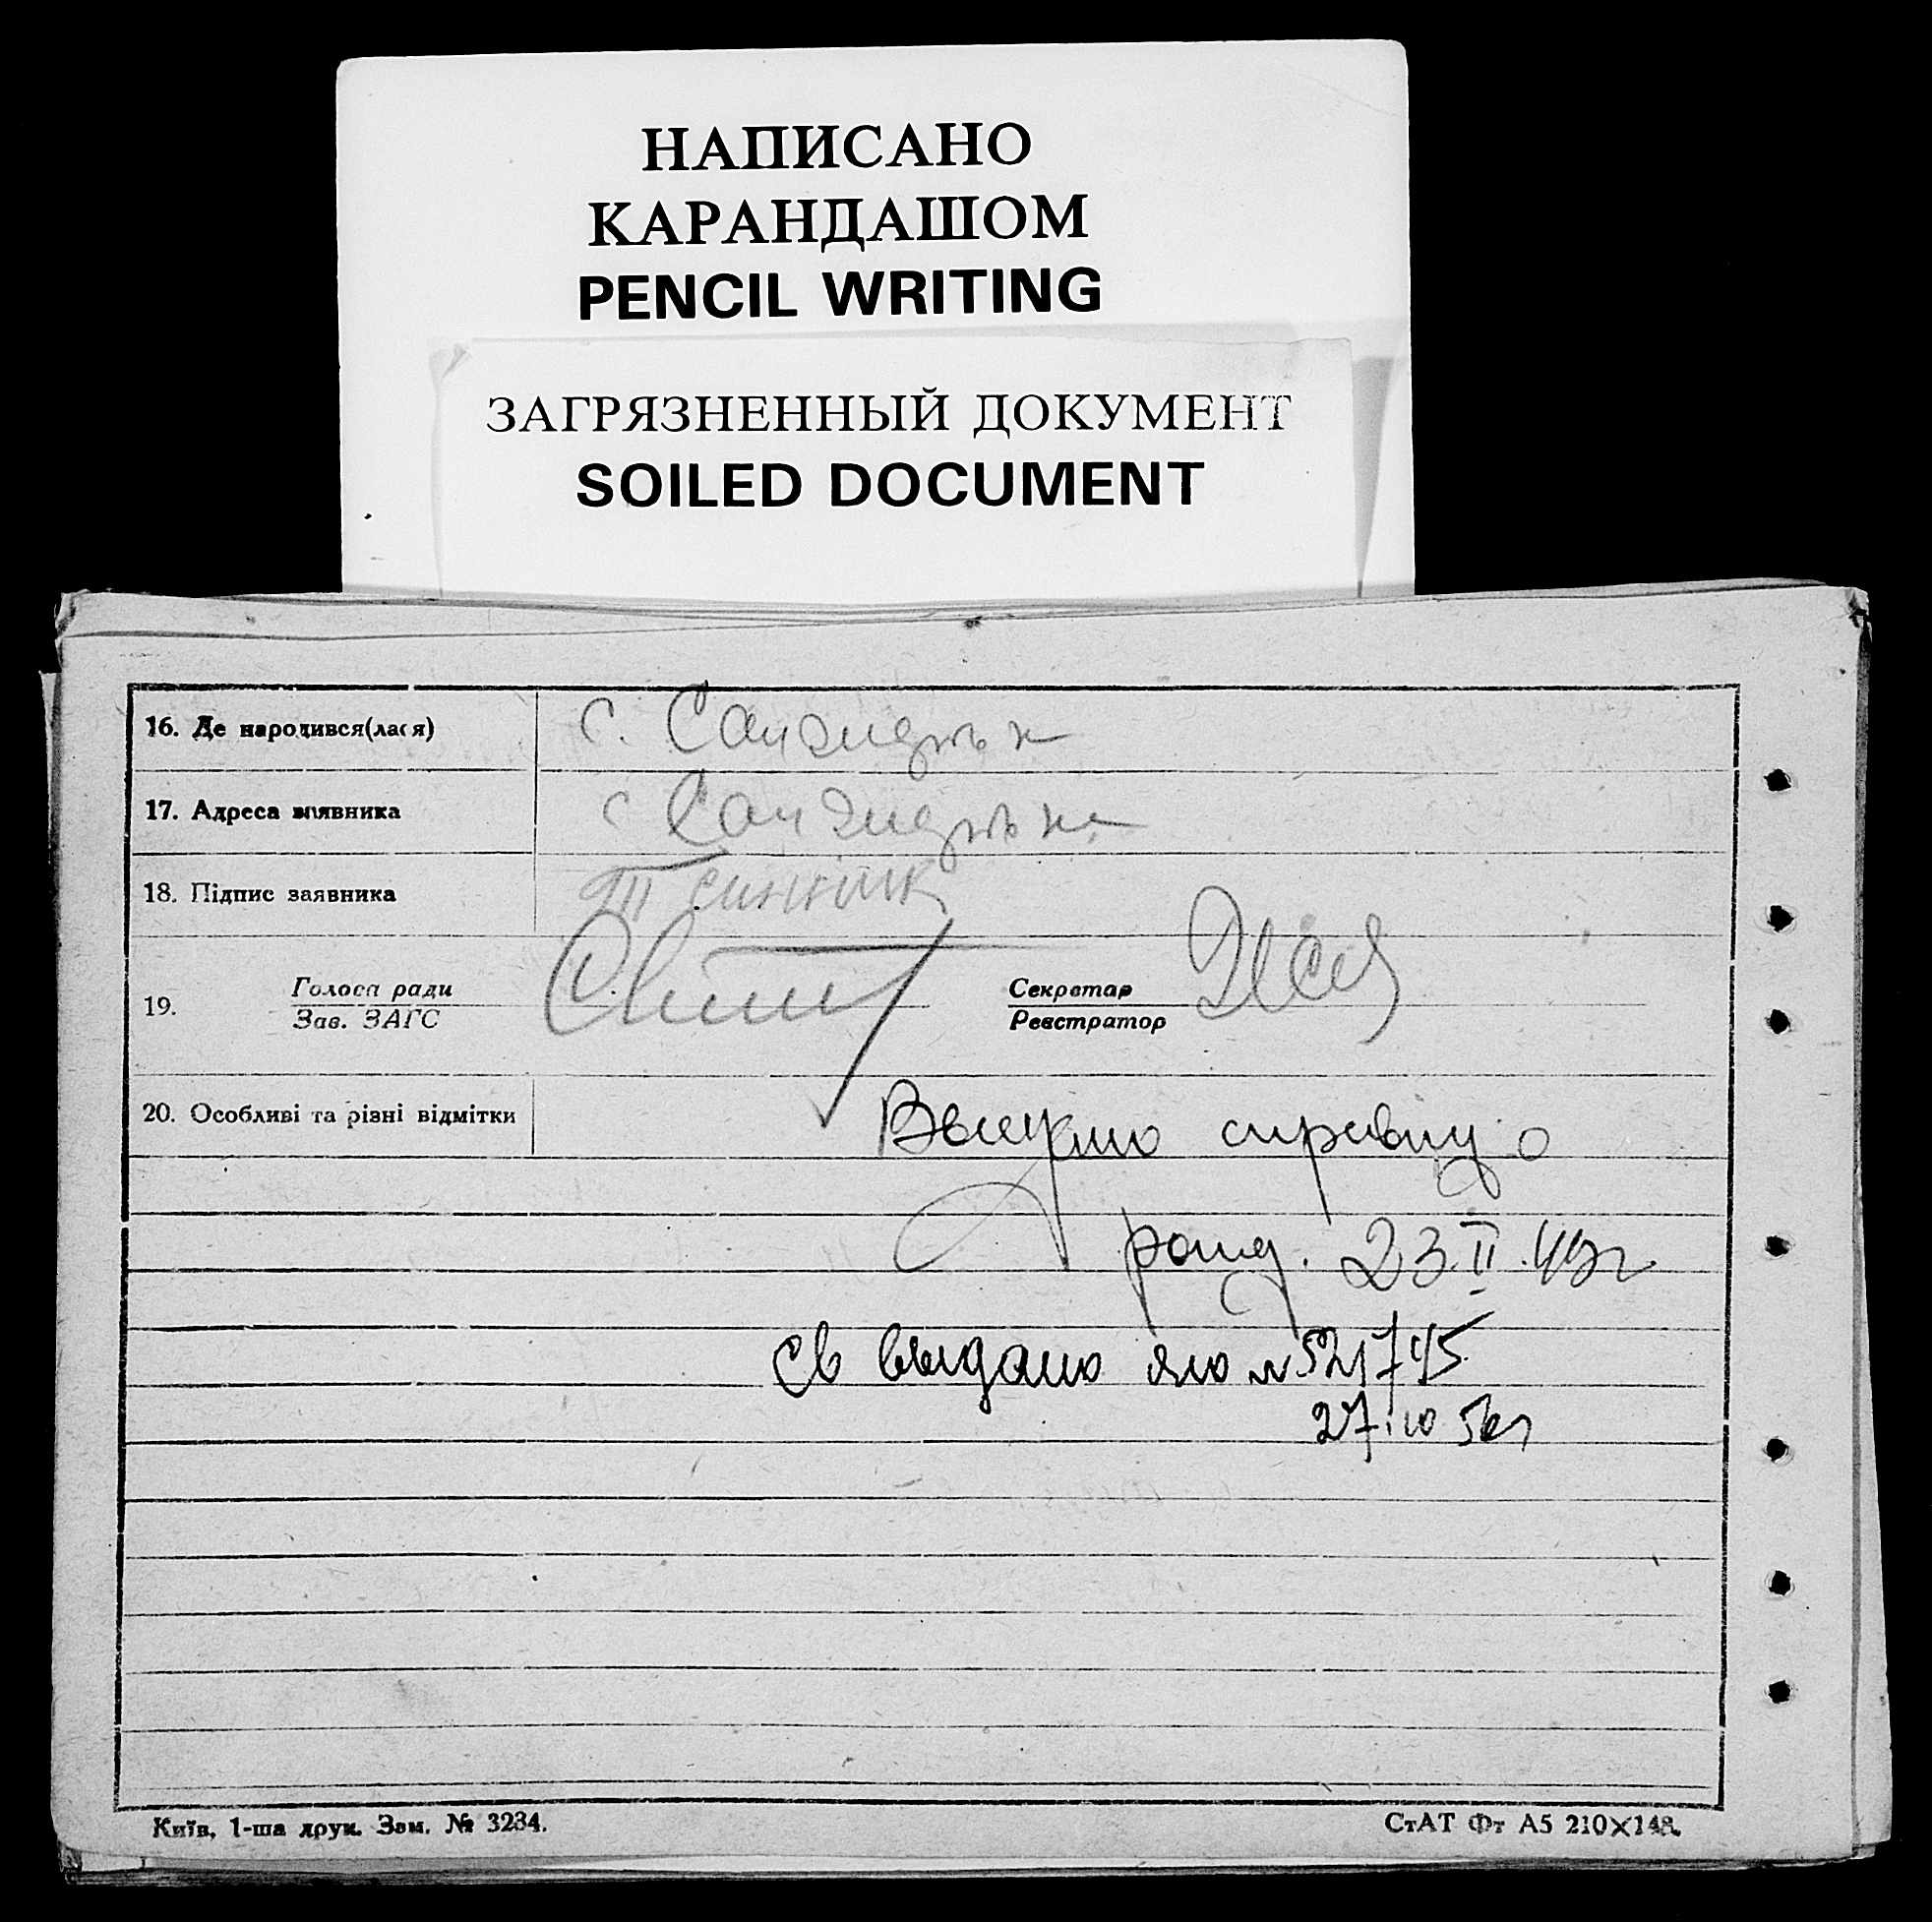 НАПИСАНО
КАРАНДАШОМ
PENCIL WRITING
ЗАГРЯЗНЕННЫЙ ДОКУМЕНТ
SOILED DOCUMENT
16. Де народився(лася)
с.
17. Адреса заявника
с
18. Підпис заявника
19.
Голова ради
Зав. ЗАГС
Секретар
Реєстратор
20. Особливі та різні відмітки
о
23.II.49г
Св выдано яю № 521745
27.10
Київ, 1-ша друк. Зам. № 3234.
СтАТ Фт А5 210×148.